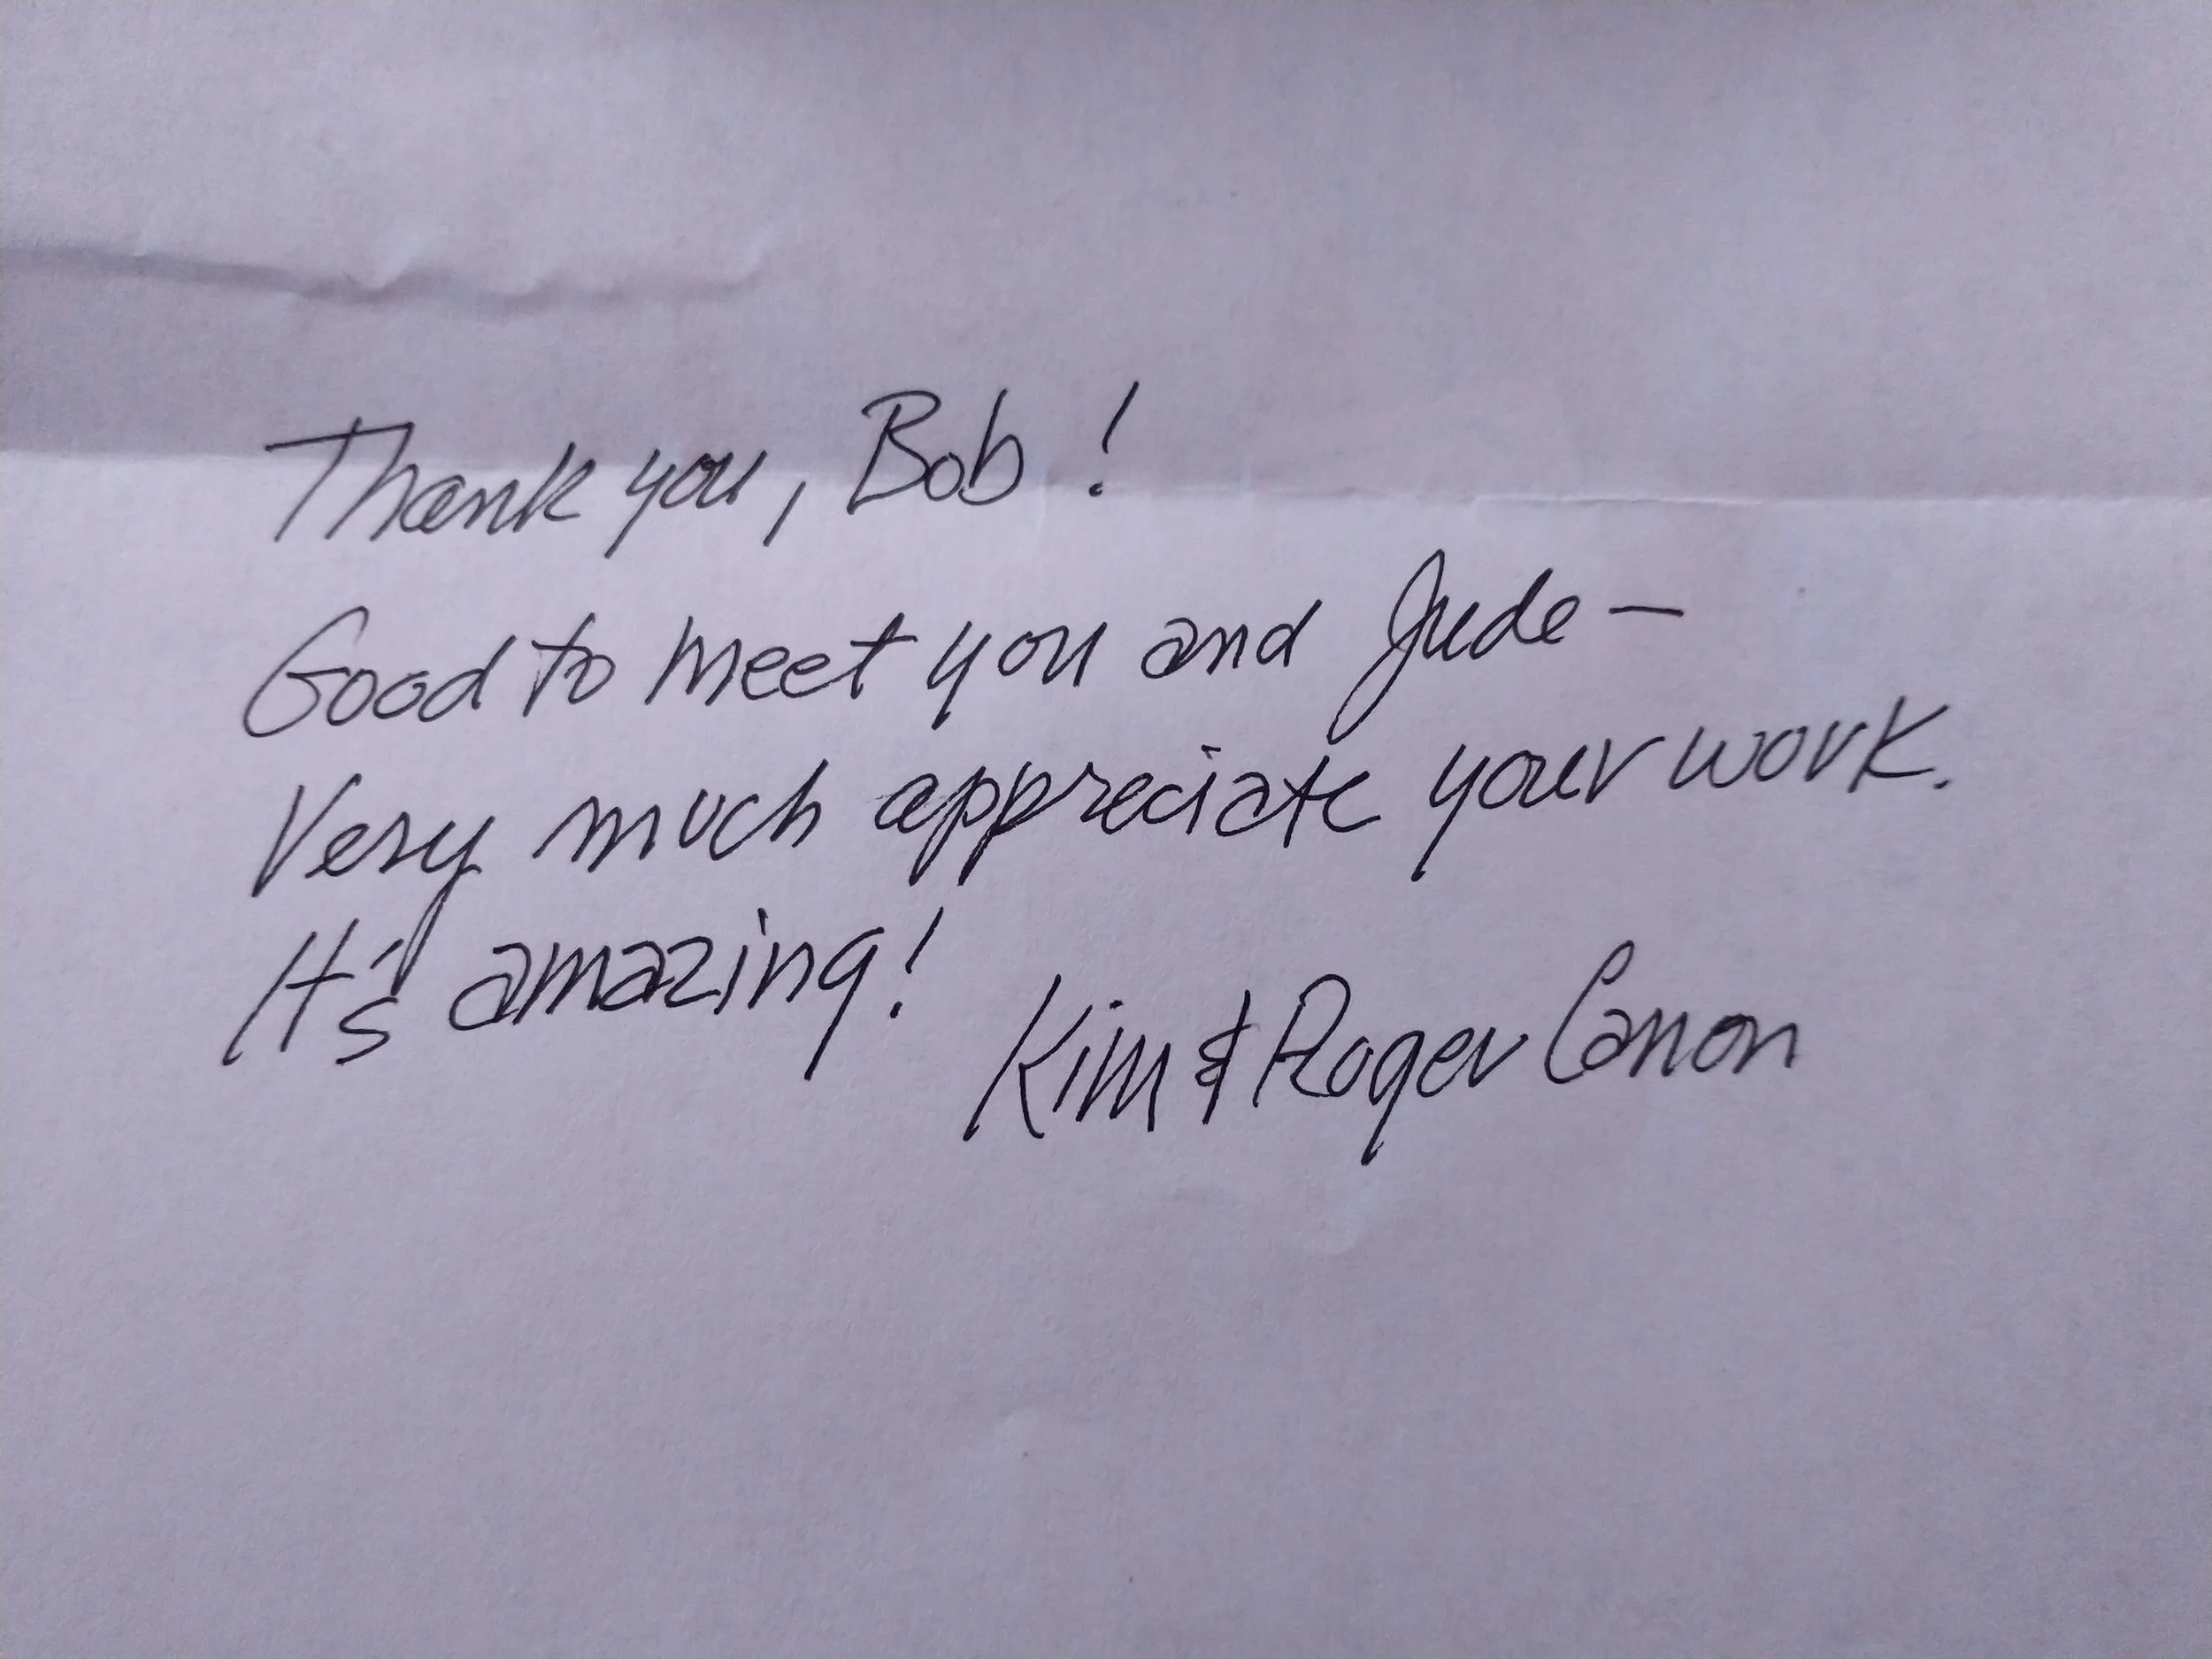 Thank you, Bob!
Good to meet you and Jude —
Very much appreciate your work.
It's amazing!
Kim & Roger Canon